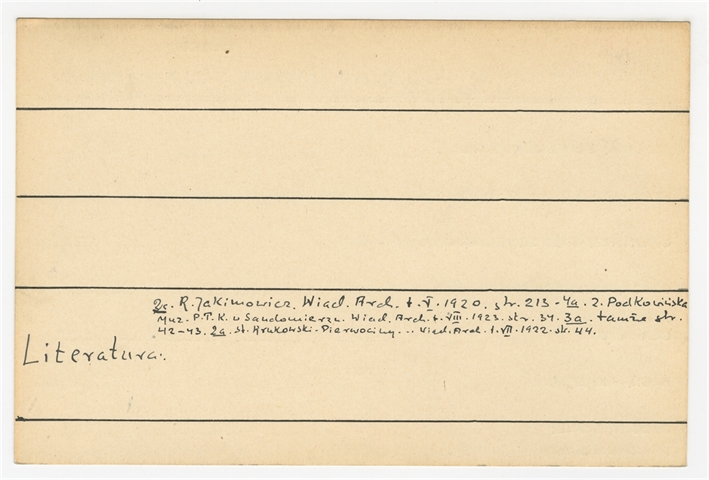 2a. R. Jakimowicz. Wiad. Arch. t. V. 1920. str. 213 - 4a. Z. Podkowińska
Muz. P.T.K. w Sandomierzu. Wiad. Arch. t. VIII. 1923. str. 34. 3a. tamże str.
42-43. 2a. St. Krukowski - Pierwociny... Wiad. Arch. t. VII. 1922. str. 44.
Literatura: